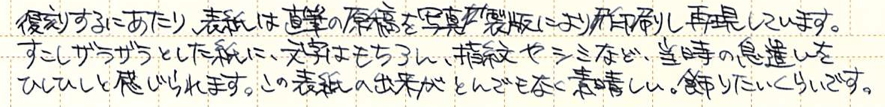 復刻するにあたり、表紙は直筆の原稿を写真製版により印刷し再現しています。
すこしザラザラとした紙に、文字はもちろん、指紋やシミなど、当時の息遣いを
ひしひしと感じられます。この表紙の出来がとんでもなく素晴しい。飾りたいくらいです。